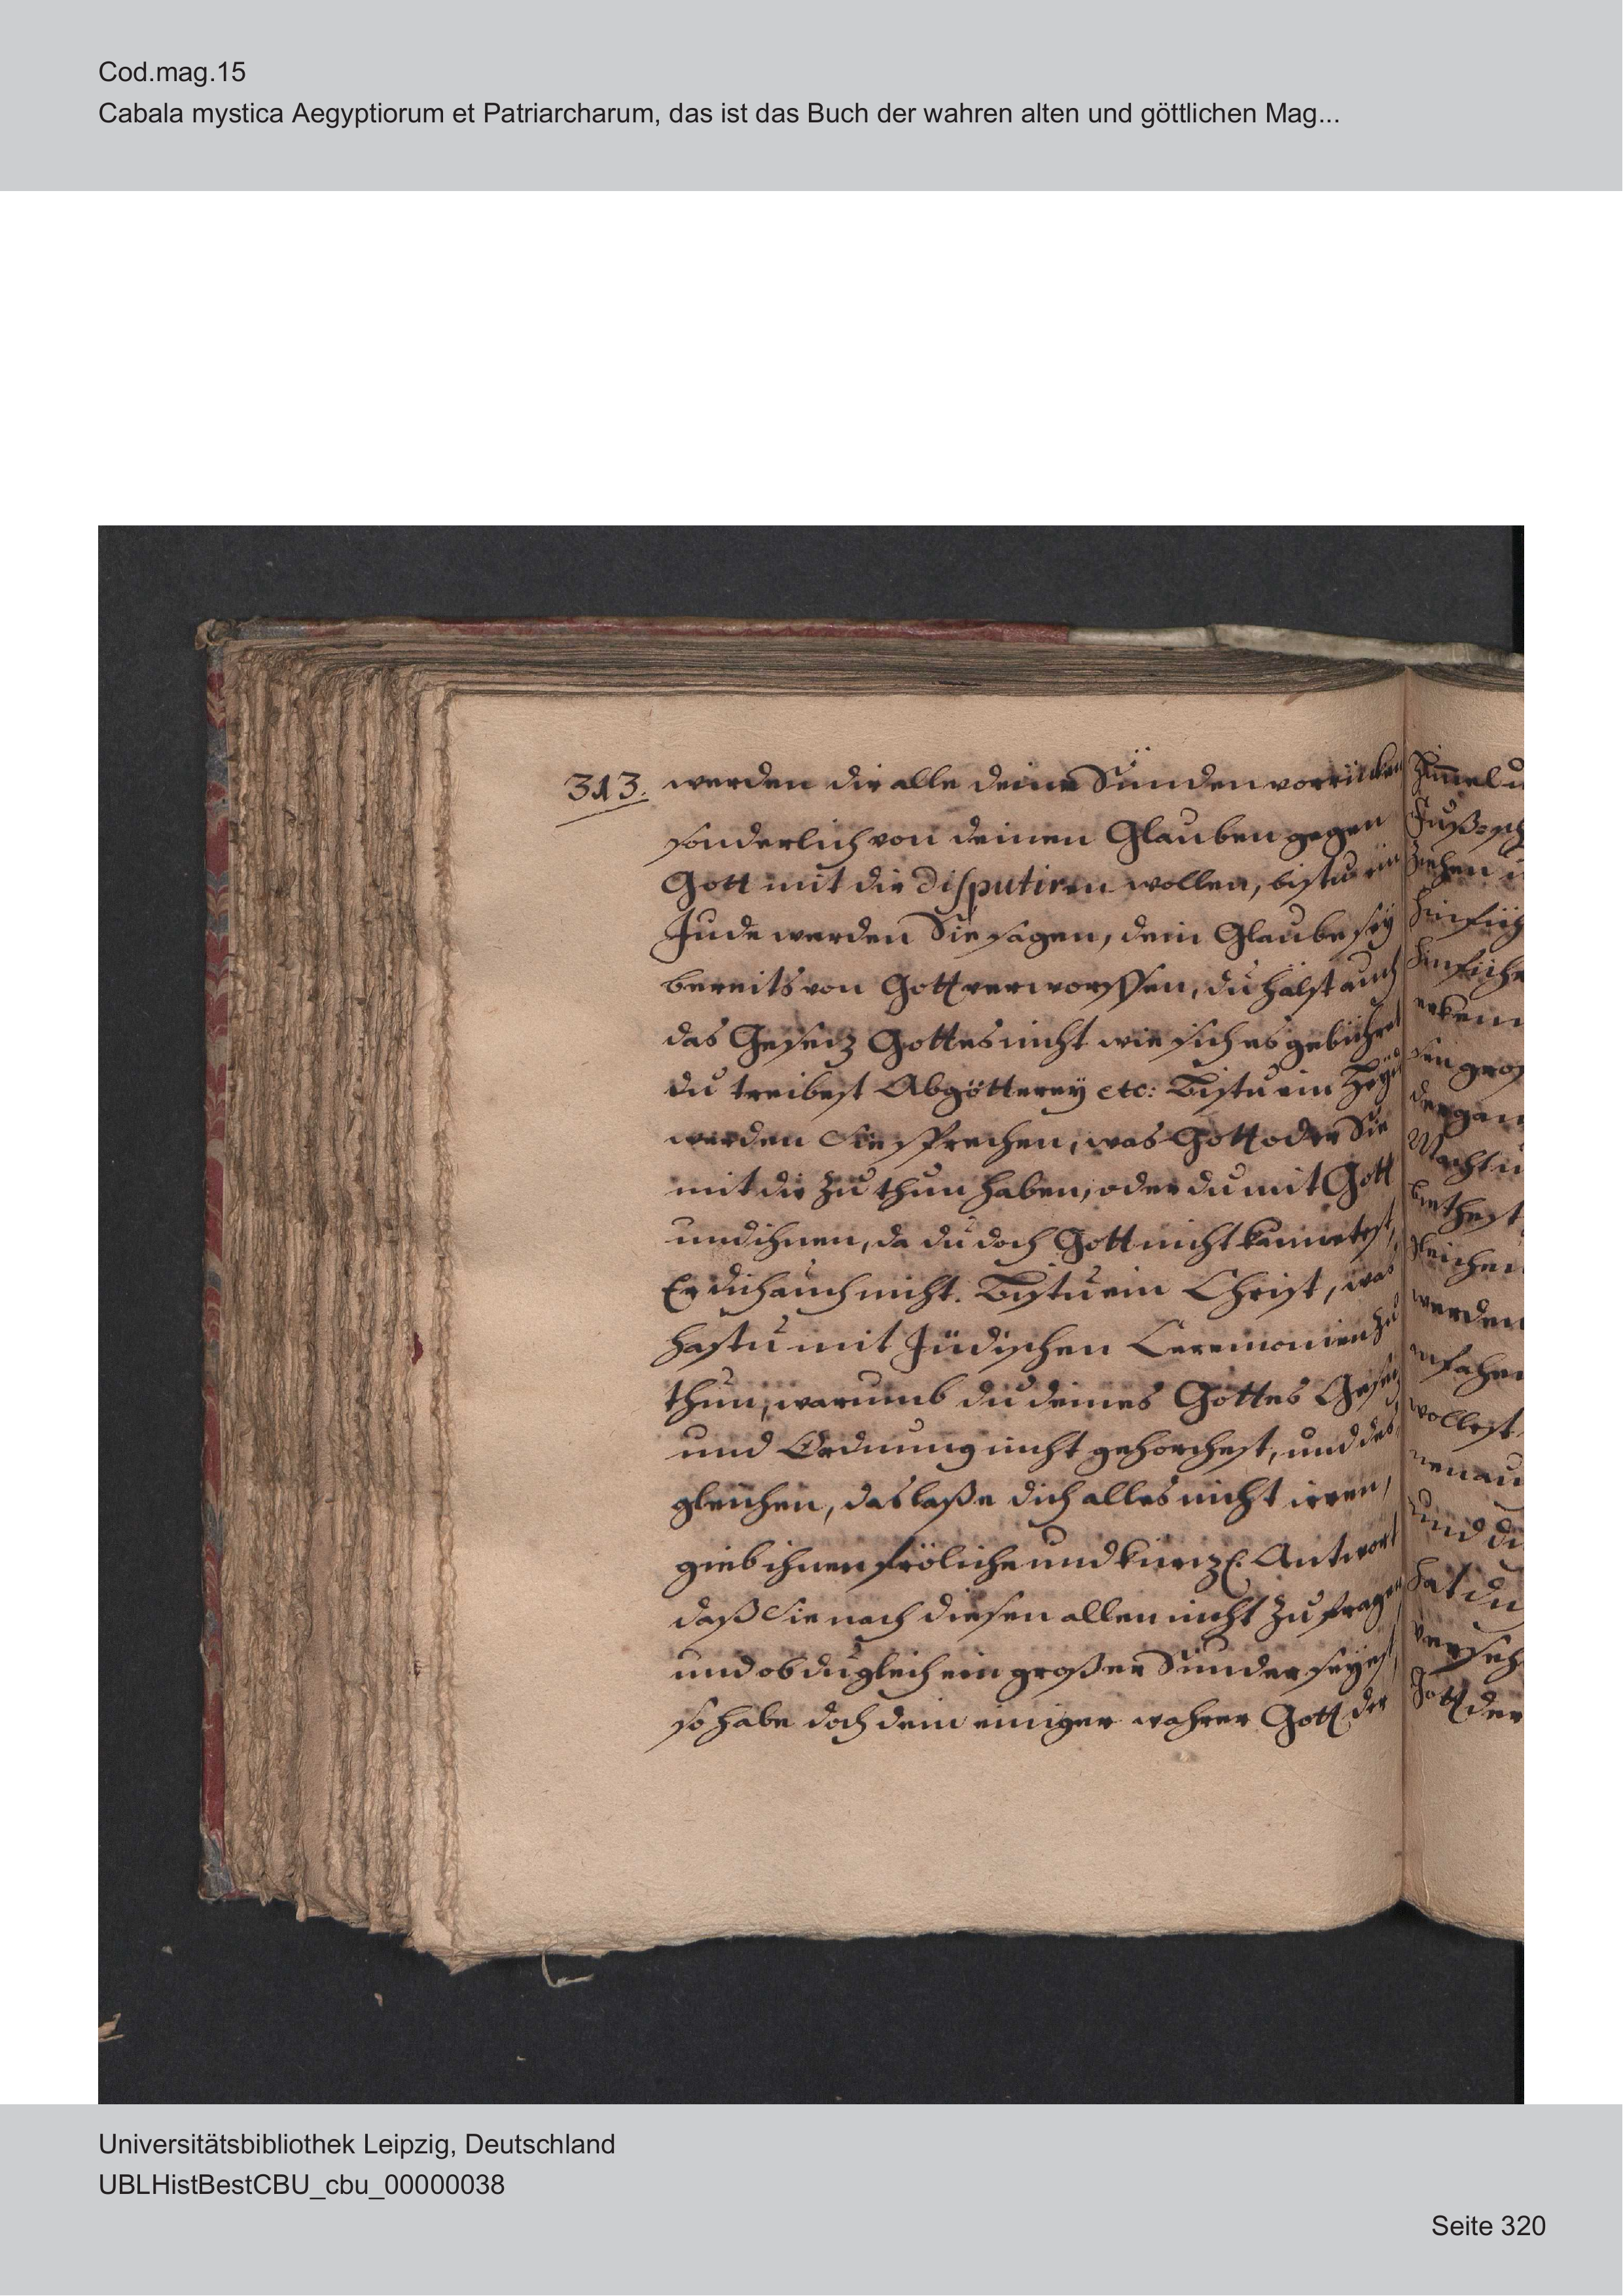 Cod.mag.15
Cabala mystica Aegyptiorum et Patriarcharum, das ist das Buch der wahren alten und göttlichen Mag...
313. werden dir alle deine Sünden vorrücken
sonderlich von deinen Glauben gegen
Gott mit dir disputiren wollen, bistu ein
Jude werden Sie sagen, dein Glaube sey
bereits von Gott verworffen, du hälst auch
das Gesetz Gottes nicht wie sich es gebühret
du treibest Abgötterey etc: Bistu ein Heyd
werden Sie sprechen, was Gott oder Sie
mit dir zu thun haben, oder du mit Gott
und ihnen, da du doch Gott nicht kennetest,
Er dich auch nicht. Bistu ein Christ, was
hastu mit Jüdischen Ceremonien zu
thun, warumb du deines Gottes Gesetz
und Ordnung nicht gehorchest, und des
gleichen, das laße dich alles nicht irren,
gieb ihnen fröliche und kurtze Antwort
daß Sie nach diesen allen nicht zu fragen
und ob du gleich ein großer Sünder seyest,
so habe doch dein einiger wahrer Gott der
Universitätsbibliothek Leipzig, Deutschland
UBLHistBestCBU_cbu_00000038
Seite 320